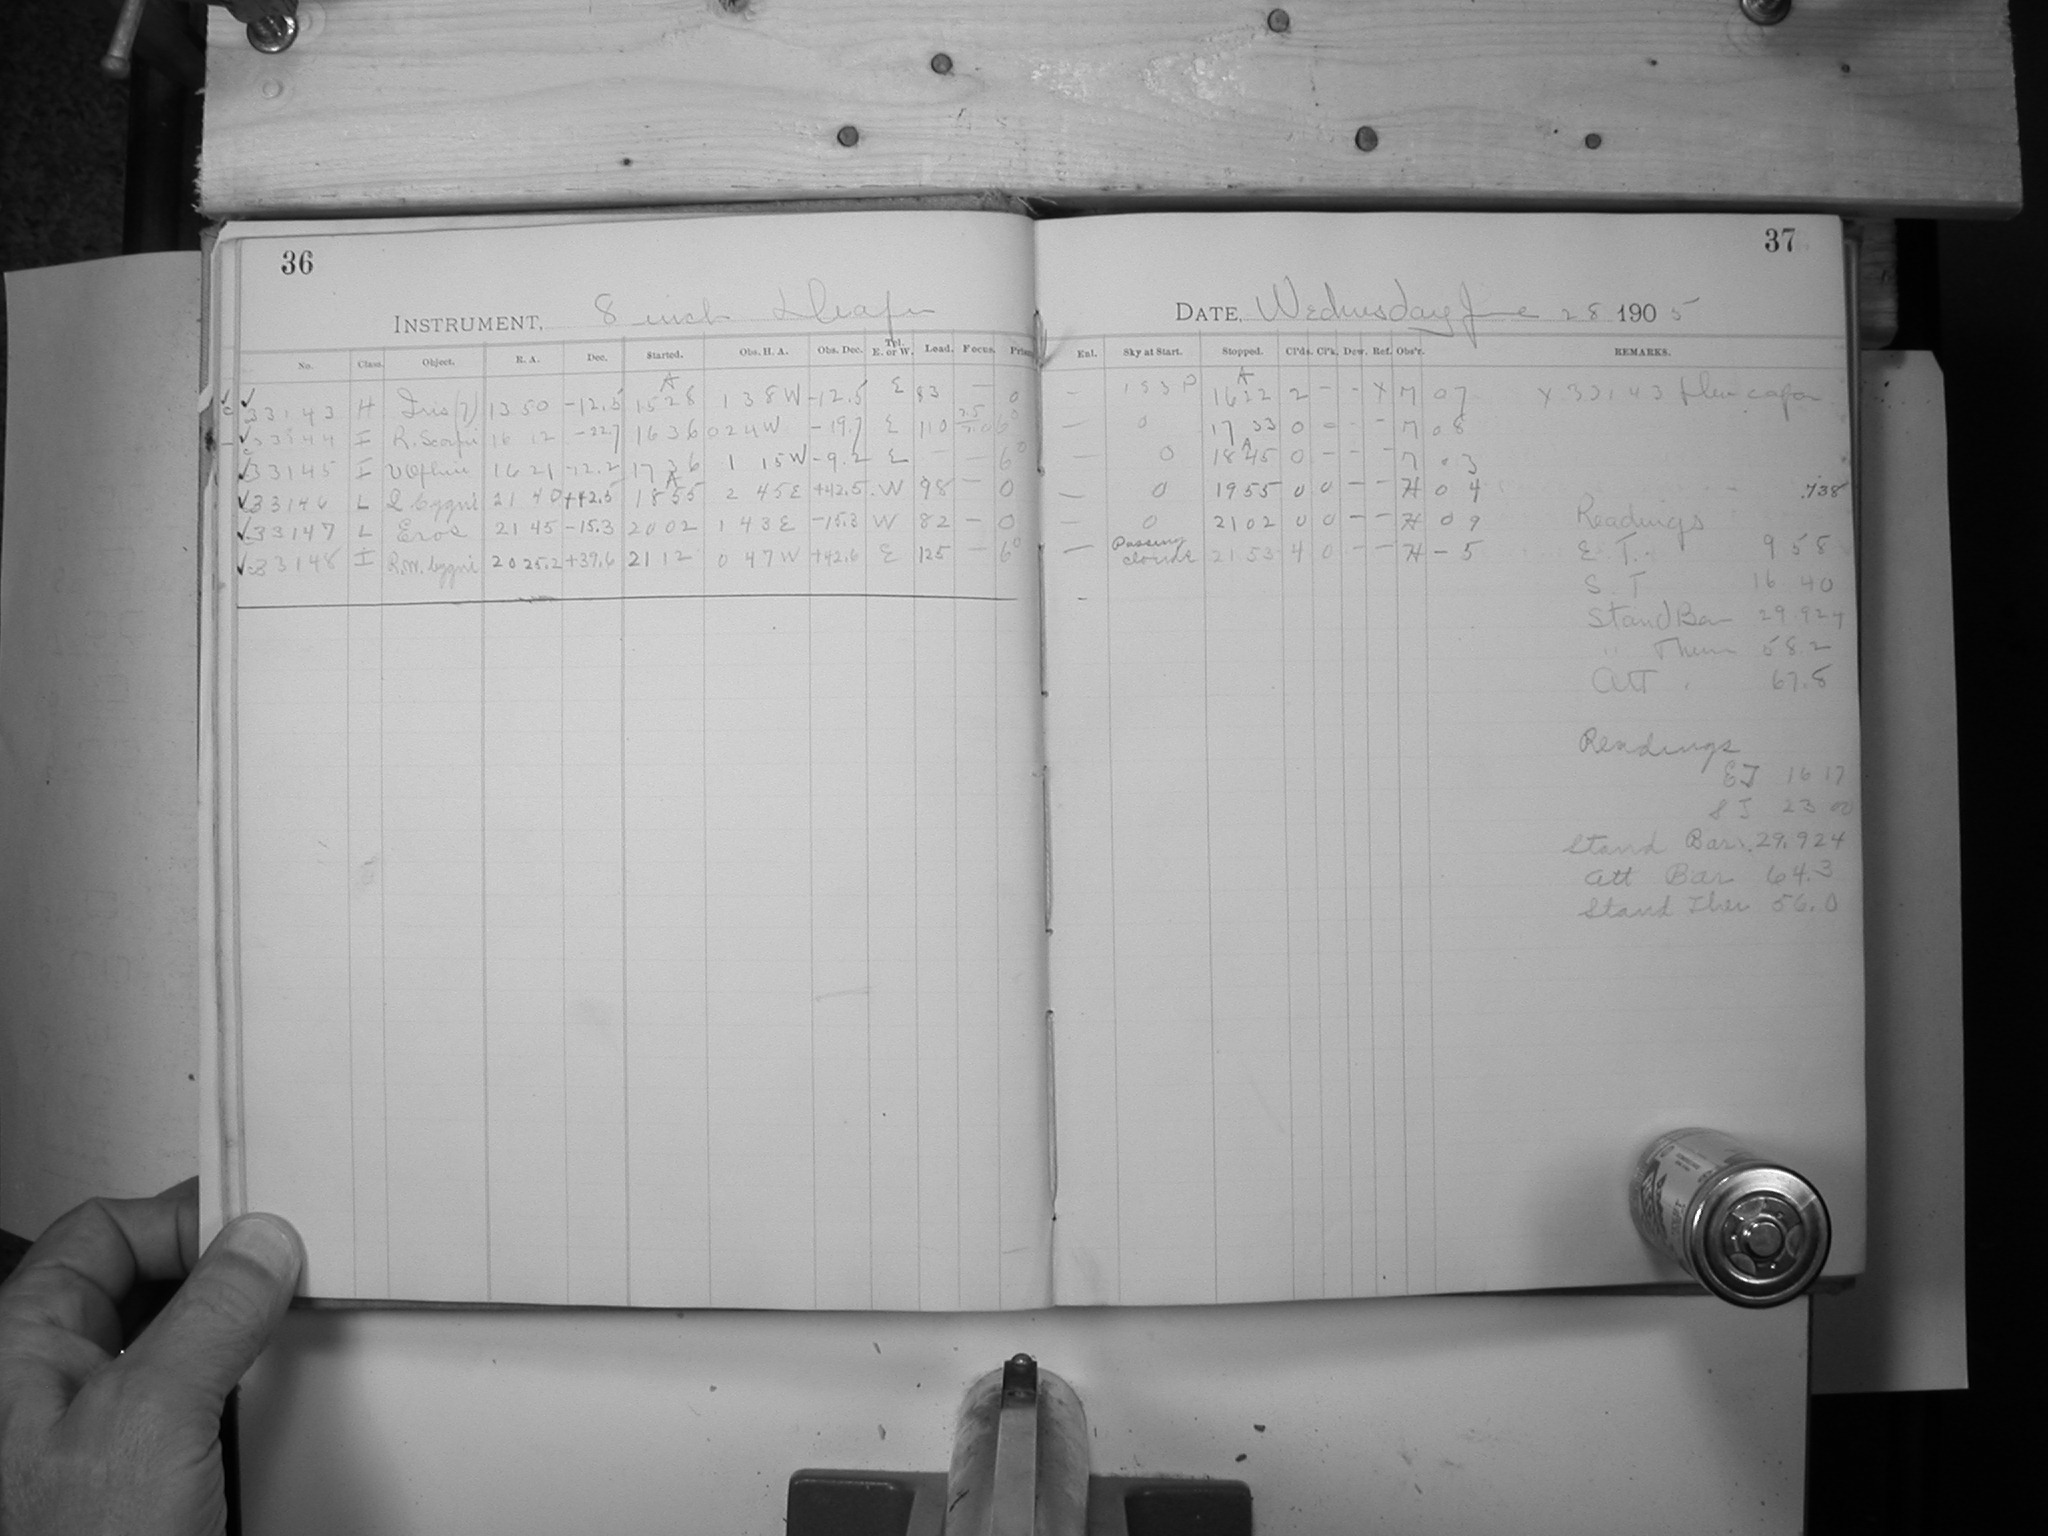 36
INSTRUMENT, 8 inch Draper
No. Class. Object. R. A. Dec. Started. Obs. H. A. Obs. Dec. Tel. E. or W. Lead. Focus.
33143 H Iris (7) 13 50 -12.5 A 15 28 1 38 W -12.5 E 83 — 0
33144 I R. Scorpii 16 12 -22.7 16 36 0 24 W -19.7 E 110 6°
33145 I V Ophiu 16 21 -12.2 17 36 1 15 W -9.2 E — — 6°
33146 L Cygni 21 40 +42.5 A 18 55 2 45 E +42.5 W 98 — 0
33147 L Eros 21 45 -15.3 20 02 1 43 E -15.3 W 82 — 0
33148 I R.W. Cygni 20 25.2 +39.6 21 12 0 47 W +42.6 E 125 — 6°
37
DATE, Wednesday June 28 1905
Enl. Sky at Start. Stopped. Cl'ds. Cl'k. Dew. Ref. Obs'r. REMARKS.
— 153 P A 16 22 2 - - X M 07 X 33143
— 0 17 33 0 - - - M 08
— 0 A 18 45 0 - - - M 03
— 0 19 55 0 0 - - H 04 .738
— 0 21 02 0 0 - - H 09
— Passing clouds 21 53 4 0 - - H - 5
Readings
E. T. 9 58
S. T 16 40
Stand Bar 29.924
" Therm 58.2
Att. 67.8
Readings
ET 16 17
ST 23 00
Stand Bar. 29.924
Att Bar 64.3
Stand Ther 56.0